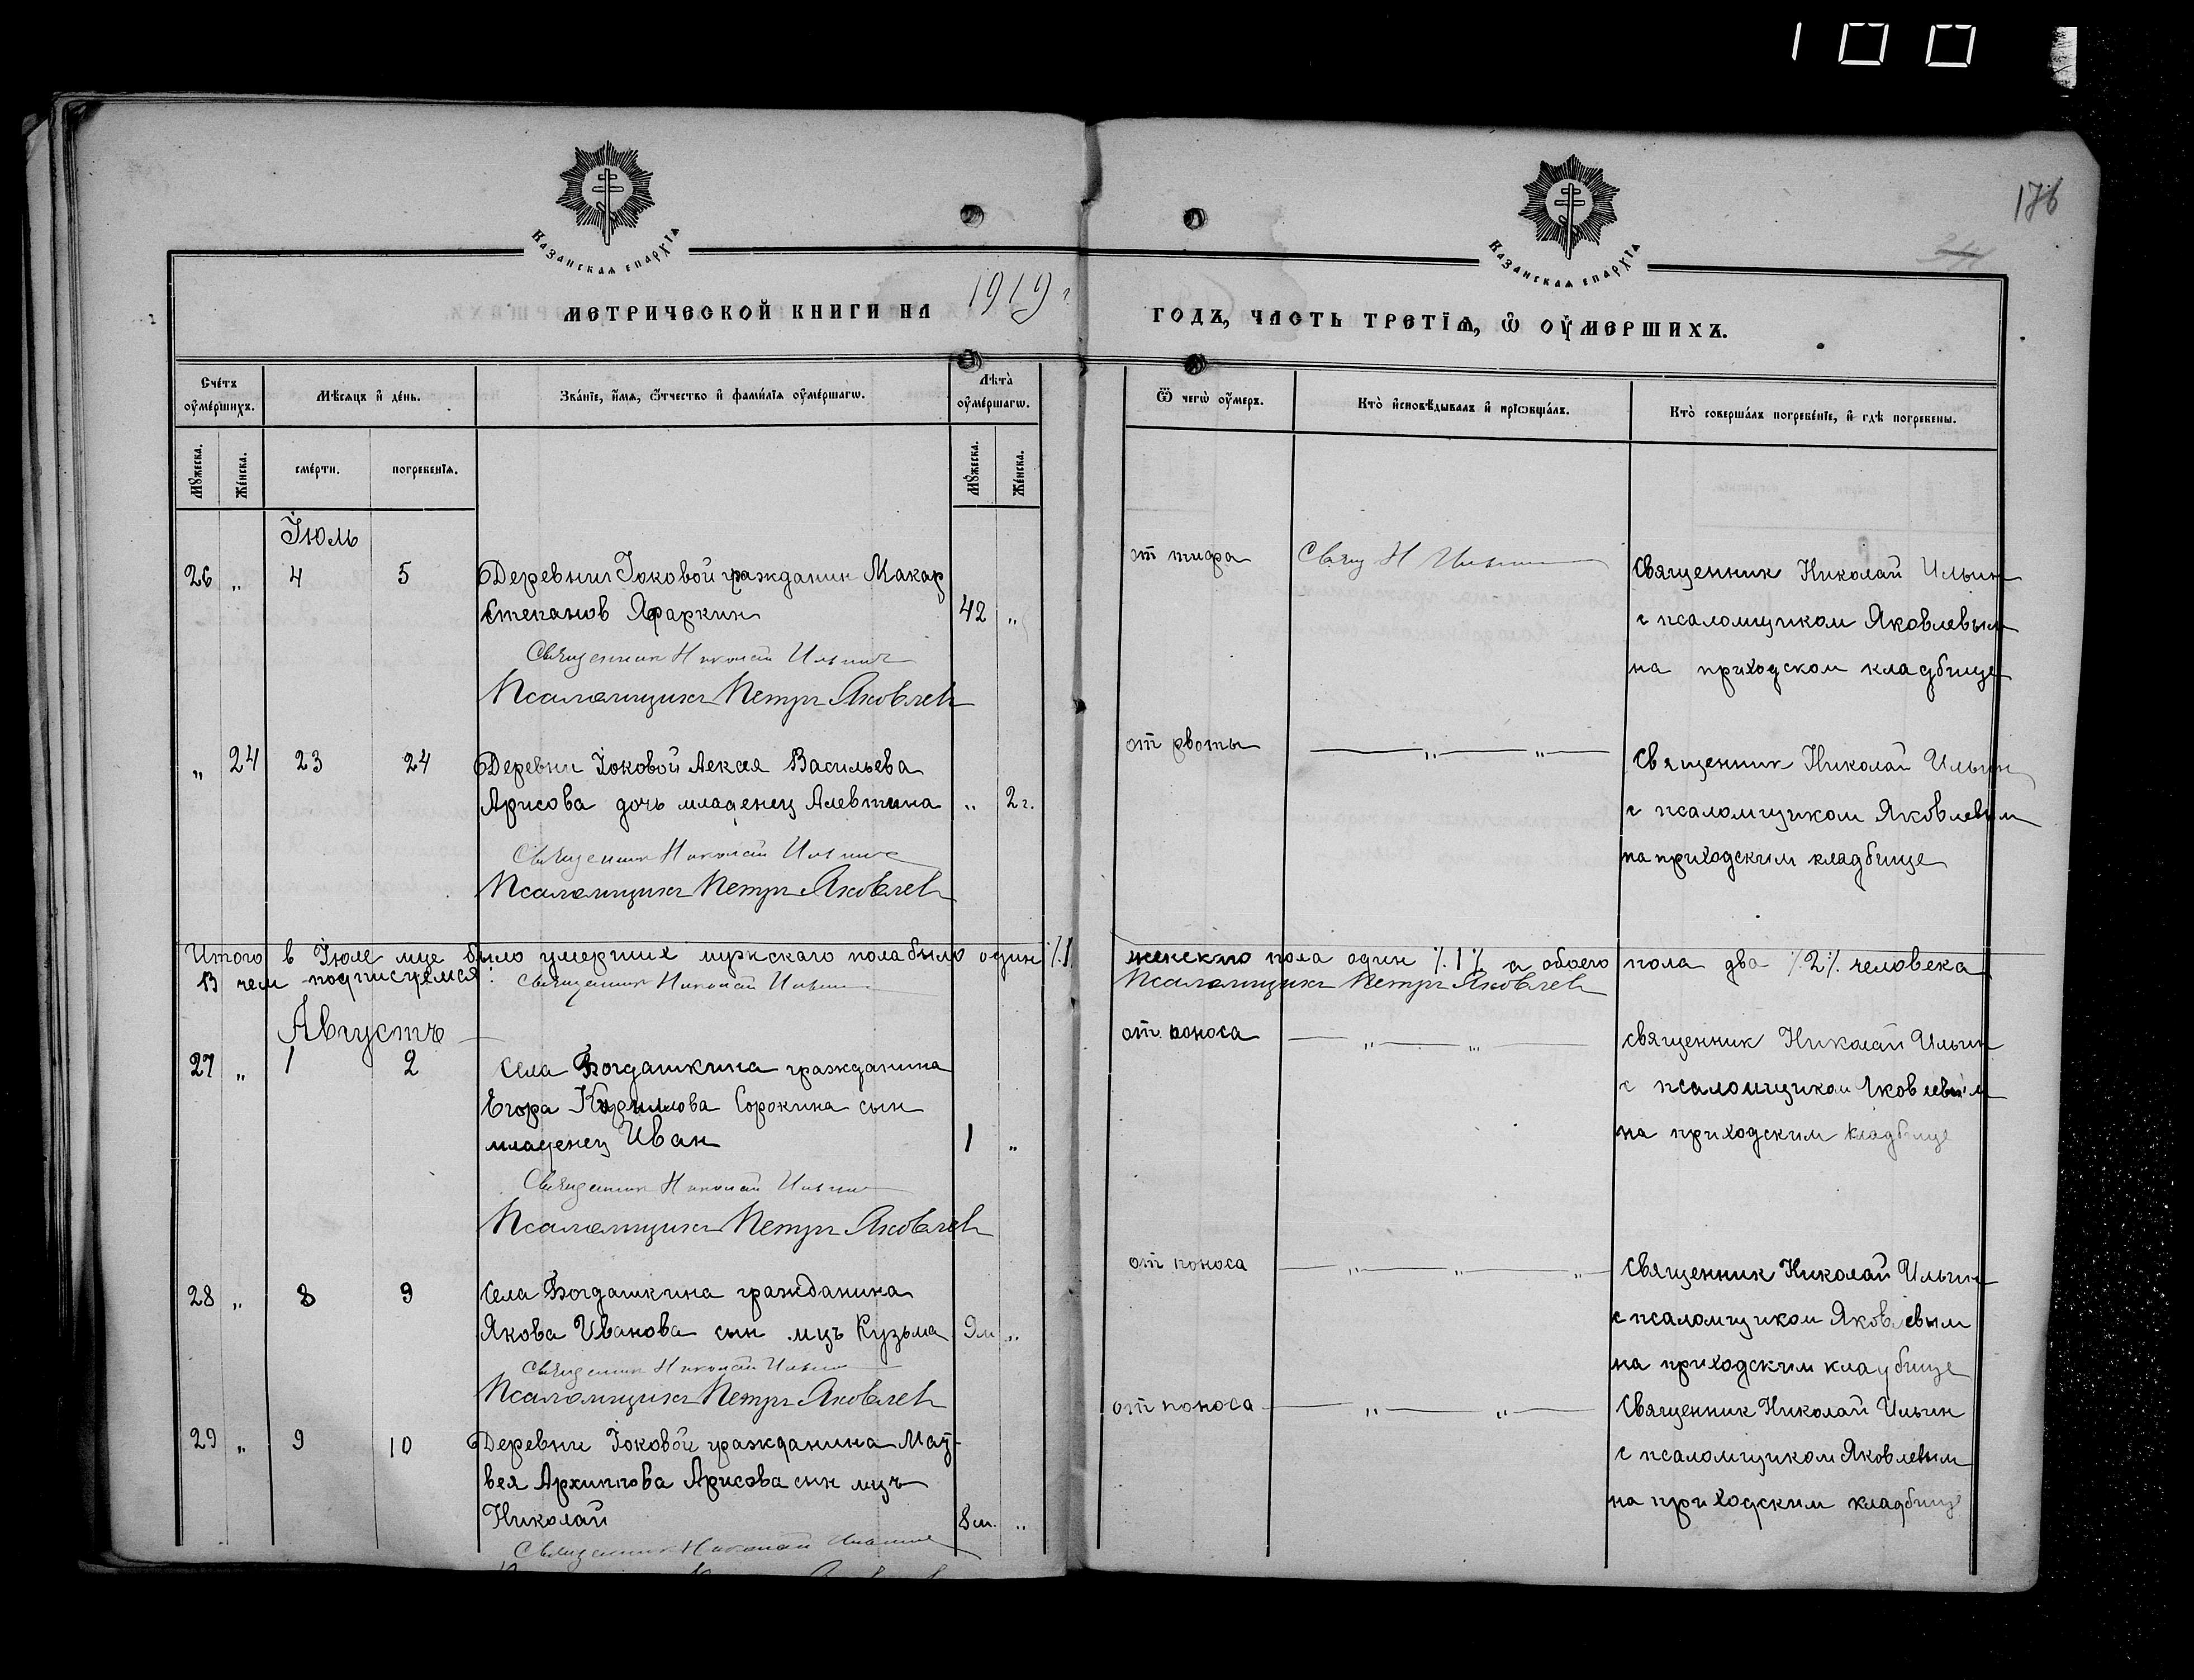 100
176
Казанская епархїа
Казанская епархїа
МЕТРИЧЕСКОЙ КНИГИ НА 1919 г.
ГОДЪ, ЧАСТЬ ТРЕТЇѦ, Ѽ ОУМЕРШИХЪ.
Счетъ оумершихъ.
Мѣсяцъ и день.
Званїе, имя, ѿчество и фамилїя оумершагѡ.
Лѣта оумершагѡ.
Ѿ чегѡ оумеръ.
Кто исповѣдывалъ и прїѡбщалъ.
Кто совершалъ погребенїе, и гдѣ погребены.
Мꙋжеска.
Женска.
смерти.
погребенїя.
Мꙋжеска.
Женска.
Іюль
26 " 4 5 Деревни Іоковой гражданин Макар
Степанов Яфаркин 42 "
Священник Николай Ильин
Псаломщикъ Петръ Яковлев
от тифа
Свящ Н Ильин
Священник Николай Ильин
с псаломщиком Яковлевым
на приходском кладбище
" 24 23 24 Деревни Іоковой Алексея Васильева
Арисова дочь младенец Алевтина " 2 г.
Священник Николай Ильин
Псаломщикъ Петръ Яковлев
от рвоты
— " — " —
Священник Николай Ильин
с псаломщиком Яковлевым
на приходским кладбище
Итого в Іюле м-це было умерших мужскаго пола было один /.1
женскаго пола один /.1 /. а обоего пола два /.2 /. человека
В чем подписуемся: Священник Николай Ильин
Псаломщикъ Петръ Яковлев
Августъ
27 " 1 2 Села Богдашкина гражданина
Егора Кириллова Сорокина сын
младенец Иван 1 "
Священник Николай Ильин
Псаломщикъ Петръ Яковлев
от поноса
— " — " —
священник Николай Ильин
с псаломщиком Яковлевым
на приходским кладбище
28 " 8 9 Села Богдашкина гражданина
Якова Иванова сын мцъ Кузьма 9 м "
Священник Николай Ильин
Псаломщикъ Петръ Яковлев
от поноса
— " — " — " —
Священник Николай Ильин
с псаломщиком Яковлевым
на приходским кладбище
29 " 9 10 Деревни Іоковой гражданина Мат-
вея Архипова Арисова сын мцъ
Николай 8 м. "
Священник Николай Ильин
от поноса
— " — " —
Священник Николай Ильин
с псаломщиком Яковлевым
на приходским кладбище